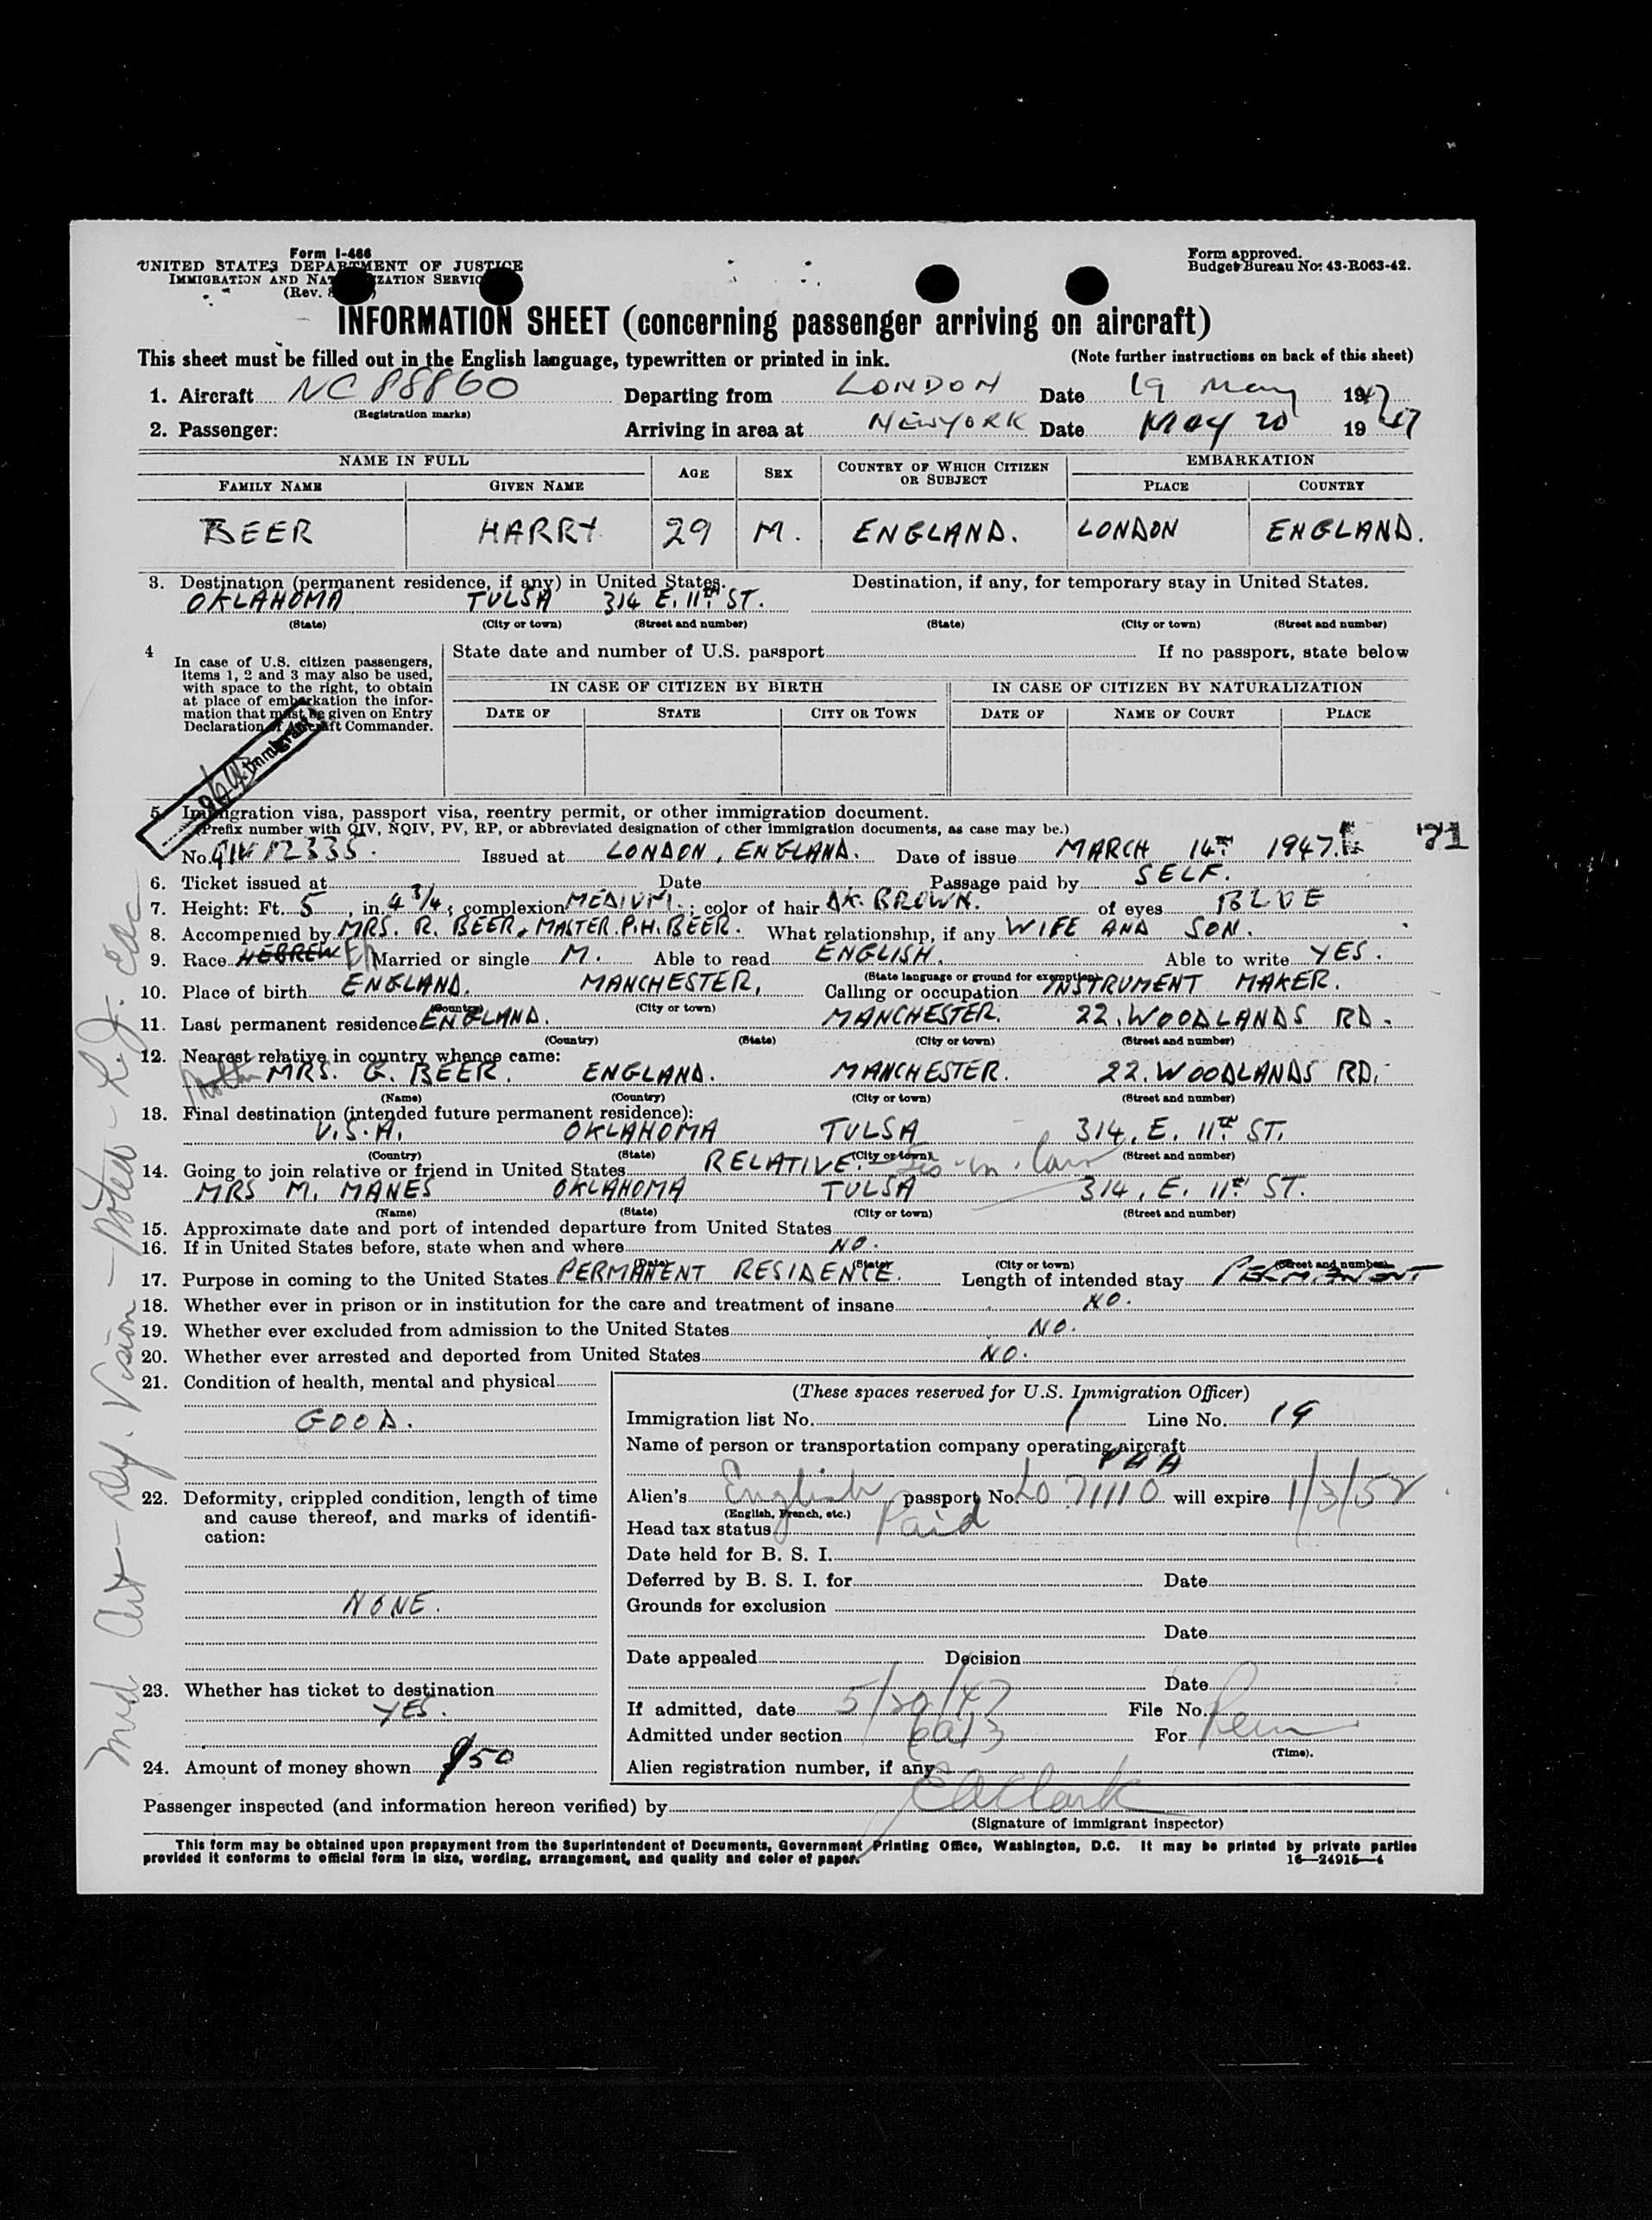 Form I-466
UNITED STATES DEPARTMENT OF JUSTICE
IMMIGRATION AND NATURALIZATION SERVICE
(Rev.
Form approved.
Budget Bureau No. 43-R063-42.
INFORMATION SHEET (concerning passenger arriving on aircraft)
This sheet must be filled out in the English language, typewritten or printed in ink. (Note further instructions on back of this sheet)
1. Aircraft NC 88860 Departing from LONDON Date 19 May 1947
(Registration marks)
2. Passenger: Arriving in area at NEWYORK Date MAY 20 1947
NAME IN FULL AGE SEX COUNTRY OF WHICH CITIZEN OR SUBJECT EMBARKATION
FAMILY NAME GIVEN NAME PLACE COUNTRY
BEER HARRY 29 M. ENGLAND. LONDON ENGLAND.
3. Destination (permanent residence, if any) in United States. Destination, if any, for temporary stay in United States.
OKLAHOMA TULSA 314 E. 11TH ST.
(State) (City or town) (Street and number) (State) (City or town) (Street and number)
4 In case of U.S. citizen passengers, items 1, 2 and 3 may also be used, with space to the right, to obtain at place of embarkation the information that must be given on Entry Declaration of Aircraft Commander.
State date and number of U.S. passport If no passport, state below
IN CASE OF CITIZEN BY BIRTH IN CASE OF CITIZEN BY NATURALIZATION
DATE OF STATE CITY OR TOWN DATE OF NAME OF COURT PLACE
Immigrant
5. Immigration visa, passport visa, reentry permit, or other immigration document.
(Prefix number with QIV, NQIV, PV, RP, or abbreviated designation of other immigration documents, as case may be.)
No. QIV 12335. Issued at LONDON, ENGLAND. Date of issue MARCH 14TH 1947. 71
6. Ticket issued at Date Passage paid by SELF.
7. Height: Ft. 5, in. 4 3/4; complexion MEDIUM.; color of hair DK. BROWN. of eyes BLUE
8. Accompanied by MRS. R. BEER, MASTER P.H. BEER. What relationship, if any WIFE AND SON.
9. Race HEBREW Married or single M. Able to read ENGLISH. Able to write YES.
(State language or ground for exemption)
10. Place of birth ENGLAND. MANCHESTER, Calling or occupation INSTRUMENT MAKER.
(Country) (City or town)
11. Last permanent residence ENGLAND. MANCHESTER. 22, WOODLANDS RD.
(Country) (State) (City or town) (Street and number)
12. Nearest relative in country whence came:
Mother MRS. G. BEER. ENGLAND. MANCHESTER. 22. WOODLANDS RD.
(Name) (Country) (City or town) (Street and number)
13. Final destination (intended future permanent residence):
U.S.A. OKLAHOMA TULSA 314, E. 11TH ST.
(Country) (State) (City or town) (Street and number)
14. Going to join relative or friend in United States RELATIVE. - Sis-in-law
MRS M. MANES OKLAHOMA TULSA 314, E. 11TH ST.
(Name) (State) (City or town) (Street and number)
15. Approximate date and port of intended departure from United States
16. If in United States before, state when and where NO.
(Date) (State) (City or town) (Street and number)
17. Purpose in coming to the United States PERMANENT RESIDENCE. Length of intended stay PERMANENT
18. Whether ever in prison or in institution for the care and treatment of insane NO.
19. Whether ever excluded from admission to the United States NO.
20. Whether ever arrested and deported from United States NO.
21. Condition of health, mental and physical
GOOD.
22. Deformity, crippled condition, length of time and cause thereof, and marks of identification:
NONE.
23. Whether has ticket to destination
YES.
24. Amount of money shown $50
(These spaces reserved for U.S. Immigration Officer)
Immigration list No. 1 Line No. 19
Name of person or transportation company operating aircraft
PAA
Alien's English passport No. LO 71110 will expire 1/3/52
(English, French, etc.)
Head tax status Paid
Date held for B. S. I.
Deferred by B. S. I. for Date
Grounds for exclusion
Date
Date appealed Decision
Date
If admitted, date 5/20/47 File No.
Admitted under section 6a13 For Perm
(Time).
Alien registration number, if any
Passenger inspected (and information hereon verified) by EAClark
(Signature of immigrant inspector)
This form may be obtained upon prepayment from the Superintendent of Documents, Government Printing Office, Washington, D.C. It may be printed by private parties
provided it conforms to official form in size, wording, arrangement, and quality and color of paper. 16—24915—4
Med Cert - Def. Vision - Noted -